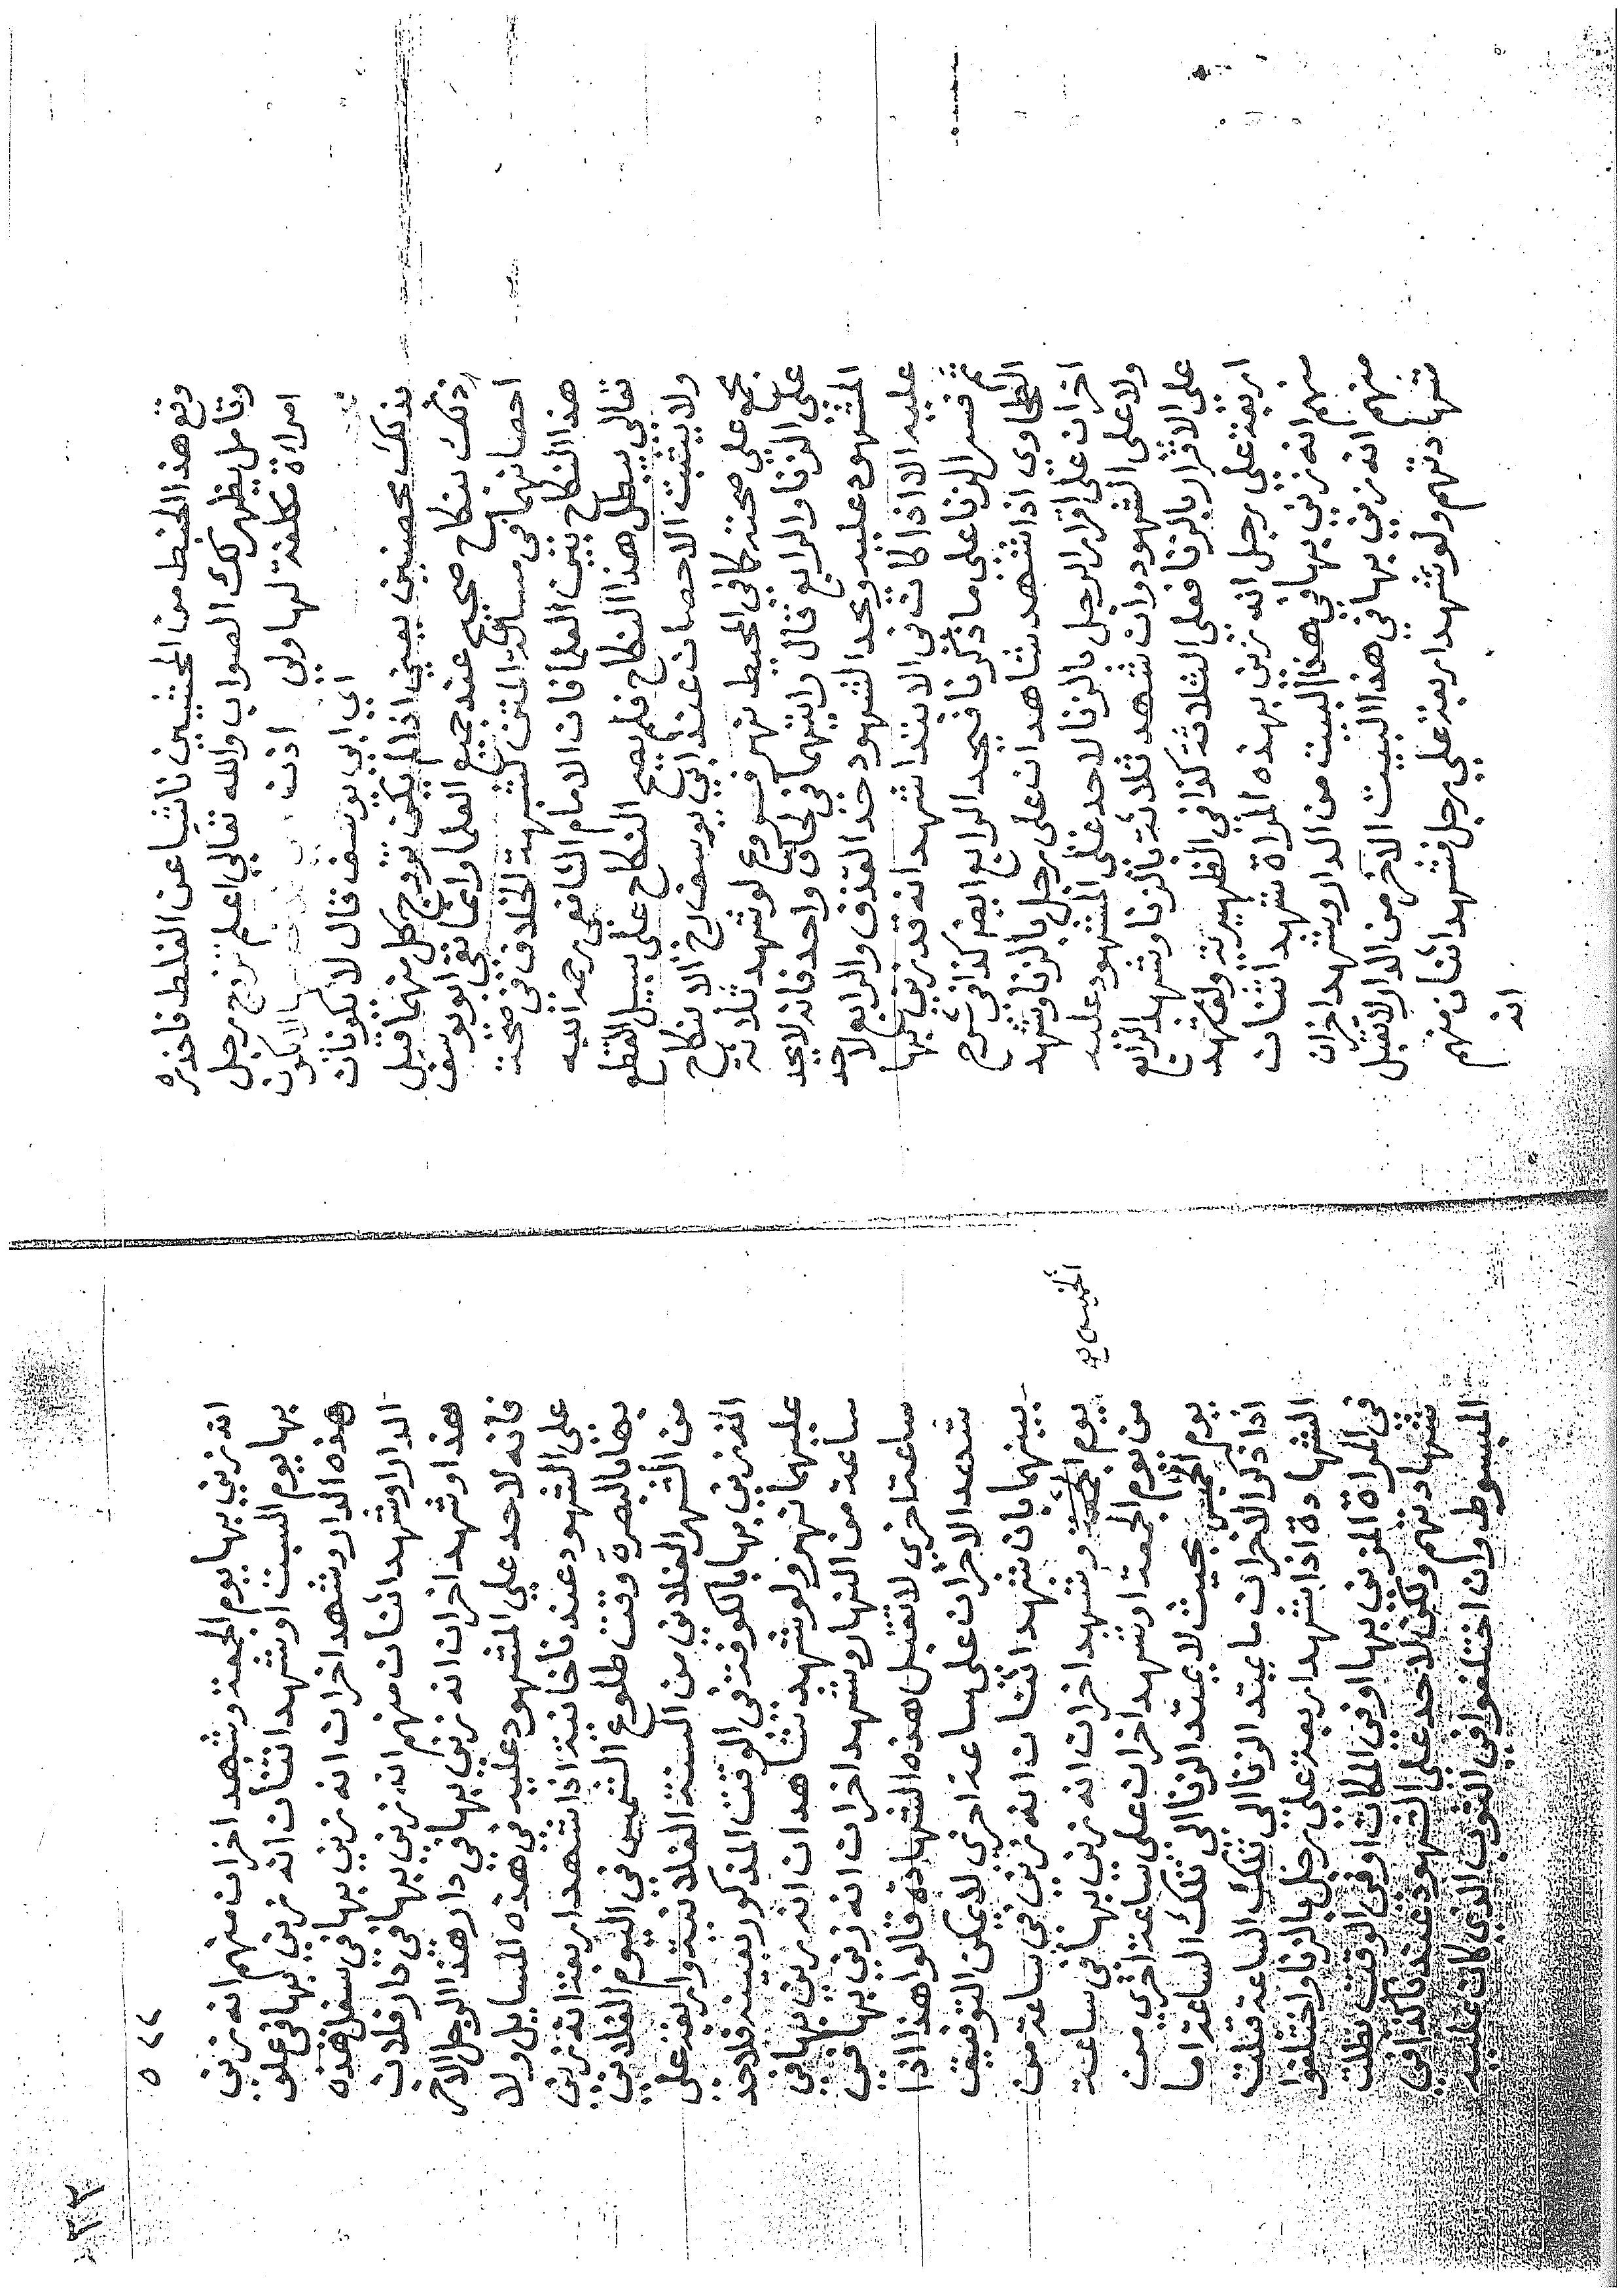 وقع هذا الخبط من المحشيين ناشيا عن الغلط فاحذره
وتأمل يظهر لك الصواب والله تعالي اعلم تزوج رجل
امراة مكلفة لها ولي اذن
اي ابي يوسف قال لا يكونان
بذلك محصنين يعني اذا لم يكن تزوج كل منهما قبل
ذلك بنكاح صحيح عند جميع العلما وانما نفي ابو يوسف
احصانهما في مسالة المتن لشبهة الخلاف في صحة
هذا النكاح بين العلما فان الامام الشافعي رحمه الله
تعالي يبطل هذا النكاح فلم يصح النكاح علي سبيل القطع
ولا يثبت الاحصان عند ابي يوسف رح الا بنكاح
مجمع علي صحته كما في المحيط نهر فروع لو شهد ثلاثة
علي الزنا والرابع قال رايتهما في لحاف واحد فانه لا يحد
المشهود عليه ويحد الشهود حد القذف والرابع لا يحد
عليه الا اذا كان في الابتدا شهد انه قد زني بها
ثم فسر الزنا علي ما ذكرنا فيحد الرابع ايضا كذا في شرح
الطحاوي اذا شهد شاهدان علي رجل بالزنا وشهد
اخران علي اقرار الرجل بالزنا لا حد علي المشهود عليه
ولا علي الشهود وان شهد ثلاثة بالزنا وشهد الرابع
علي الاقرار بالزنا فعلي الثلاثة كذا في الظهيرية ولو شهد
اربعة علي رجل انه زني بهذه المراة شهد اثنان
منهم انه زني بها في هذا البيت من الدار وشهد اخران
منهم انه زني بها في هذا البيت الاخر من الدار لا تقبل
شهادتهم ولو شهد اربعة علي رجل فشهد اثنان منهم
انه
٥٤٤
انه زني بها يوم الجمعة وشهد اخران منهم انه زني
بها يوم السبت او شهد اثنان انه زني بها في علو
هذه الدار وشهد اخران انه زني بها في سفل هذه
الدار او شهد اثنان منهم انه زني بها في دار فلان
هذا وشهد اخران انه زني بها في دار هذا الرجل الاخر
فانه لا حد علي المشهود عليه في هذه المسايل ولا
علي الشهود عندنا خانية اذا شهد اربعة انه زني
بها بالبصرة وقت طلوع الشمس في اليوم الفلاني
من الشهر الفلاني من السنة الفلانية واربعة علي
انه زني بها بالكوفة في الوقت المذكور بعينه فلا حد
عليهما نهر ولو شهد شاهدان انه زني بها في
ساعة من النهار وشهد اخران انه زني بها في
ساعة اخري لا تقبل هذه الشهادة قالوا هذا اذا
شهد الاخران علي ساعة اخري لا يمكن التوفيق
بينهما بان شهد اثنان انه زني في ساعة من
يوم الخميس وشهد اخران انه زني بها في ساعة
من يوم الجمعة او شهد اخران علي ساعة اخري من
يوم الخميس بحيث لا يمتد الزنا الي تلك الساعة اما
اذا ذكر الاخران ما يمتد الزنا الي تلك الساعة قبلت
الشهادة اذا شهد اربعة علي رجل بالزنا واختلفوا
في المراة المزني بها او في المكان او في الوقت بطلت
شهادتهم ولكن لا حد علي الشهود عندنا كذا في
المبسوط وان اختلفوا في الثوب الذي كان عليه
الخميس